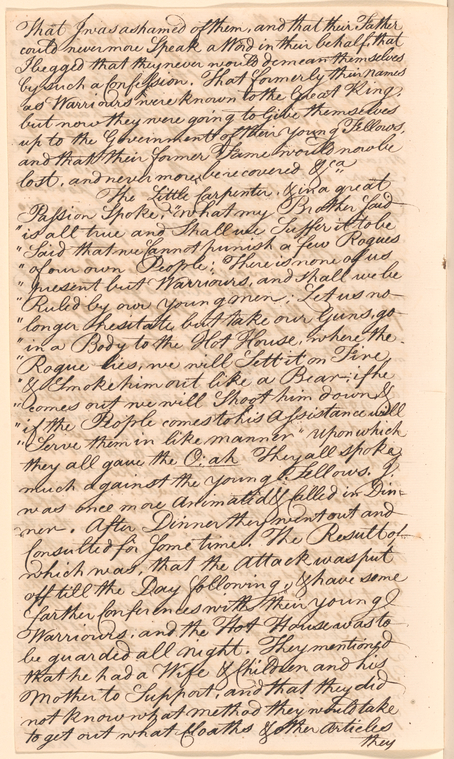 that I was ashamed of them, and that their Father
could never more Speak a Word in their behalf, that
I begged that they never would demean themselves
by such a Confession. That formerly their names
as Warriours were known to the Great King,
but now they were going to Give themselves
up to the Government of their Young Fellows,
and that their former Fame would now be
lost, and never more be recovered &ca
The Little Carpenter, & in a great
Passion Spoke; "what my Brother Said
" is all true and Shall we Suffer it to be
" Said that we Cannot punish a few Rogues
" of our own People; There is none of us
" present but Warriours, and shall we be
" Ruled by our Young men; Let us no
" longer hesitate, but take our Guns, go
" in a Body to the Hot House, where the
" Rogue lies, we will Sett it on Fire
" & Smoke him out like a Bear; if he
" comes out we will Shoot him down &
" if the People comes to his Assistance will
" Serve them in like manner" upon which
they all gave the O:ah They all spoke
much against the Young Fellows. I
was once more Animated & called in Din=
ner. After Dinner they went out and
Consulted for Some time. The Result of
which was, that the Attack was put
off till the Day following, & have some
farther Conferences with their Young
Warriours, and the Hot House was to
be guarded all night. They mentioned
that he had a Wife & Children and his
Mother to Support, and that they did
not know what method they would take
to get out what Cloaths & other Articles
they